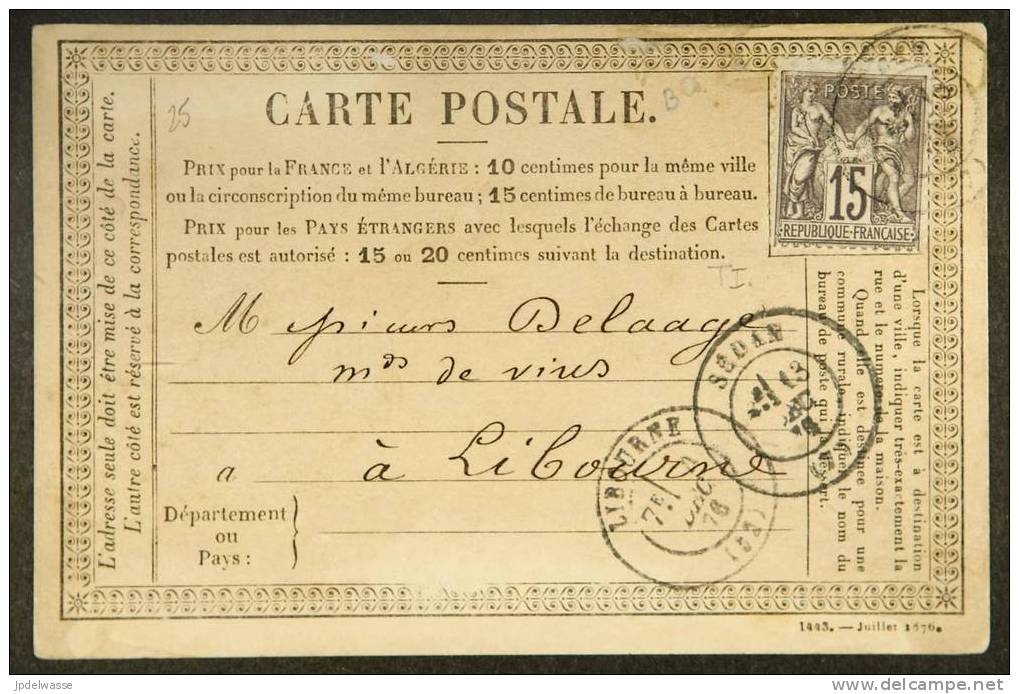 L'adresse seule doit être mise de ce côté de la carte.
L'autre côté est réservé à la correspondance.
25
CARTE POSTALE.
BQ
PRIX pour la FRANCE et l'ALGÉRIE : 10 centimes pour la même ville
ou la circonscription du même bureau ; 15 centimes de bureau à bureau.
PRIX pour les PAYS ÉTRANGERS avec lesquels l'échange des Cartes
postales est autorisé : 15 ou 20 centimes suivant la destination.
POSTE
15
REPUBLIQUE-FRANÇAISE
T I.
Lorsque la carte est à destination
d'une ville, indiquer très-exactement la
rue et le numéro de la maison.
Quand elle est destinée pour une
commune rurale, indiquer le nom du
bureau de poste qui la dessert.
Delaage
mds de vins
a à Libourne
SEDAN
13
LIBOURNE
7E
DEC
76
(32)
Département
ou
Pays :
1443. — Juillet 1876.
jpdelwasse
delcampe.net